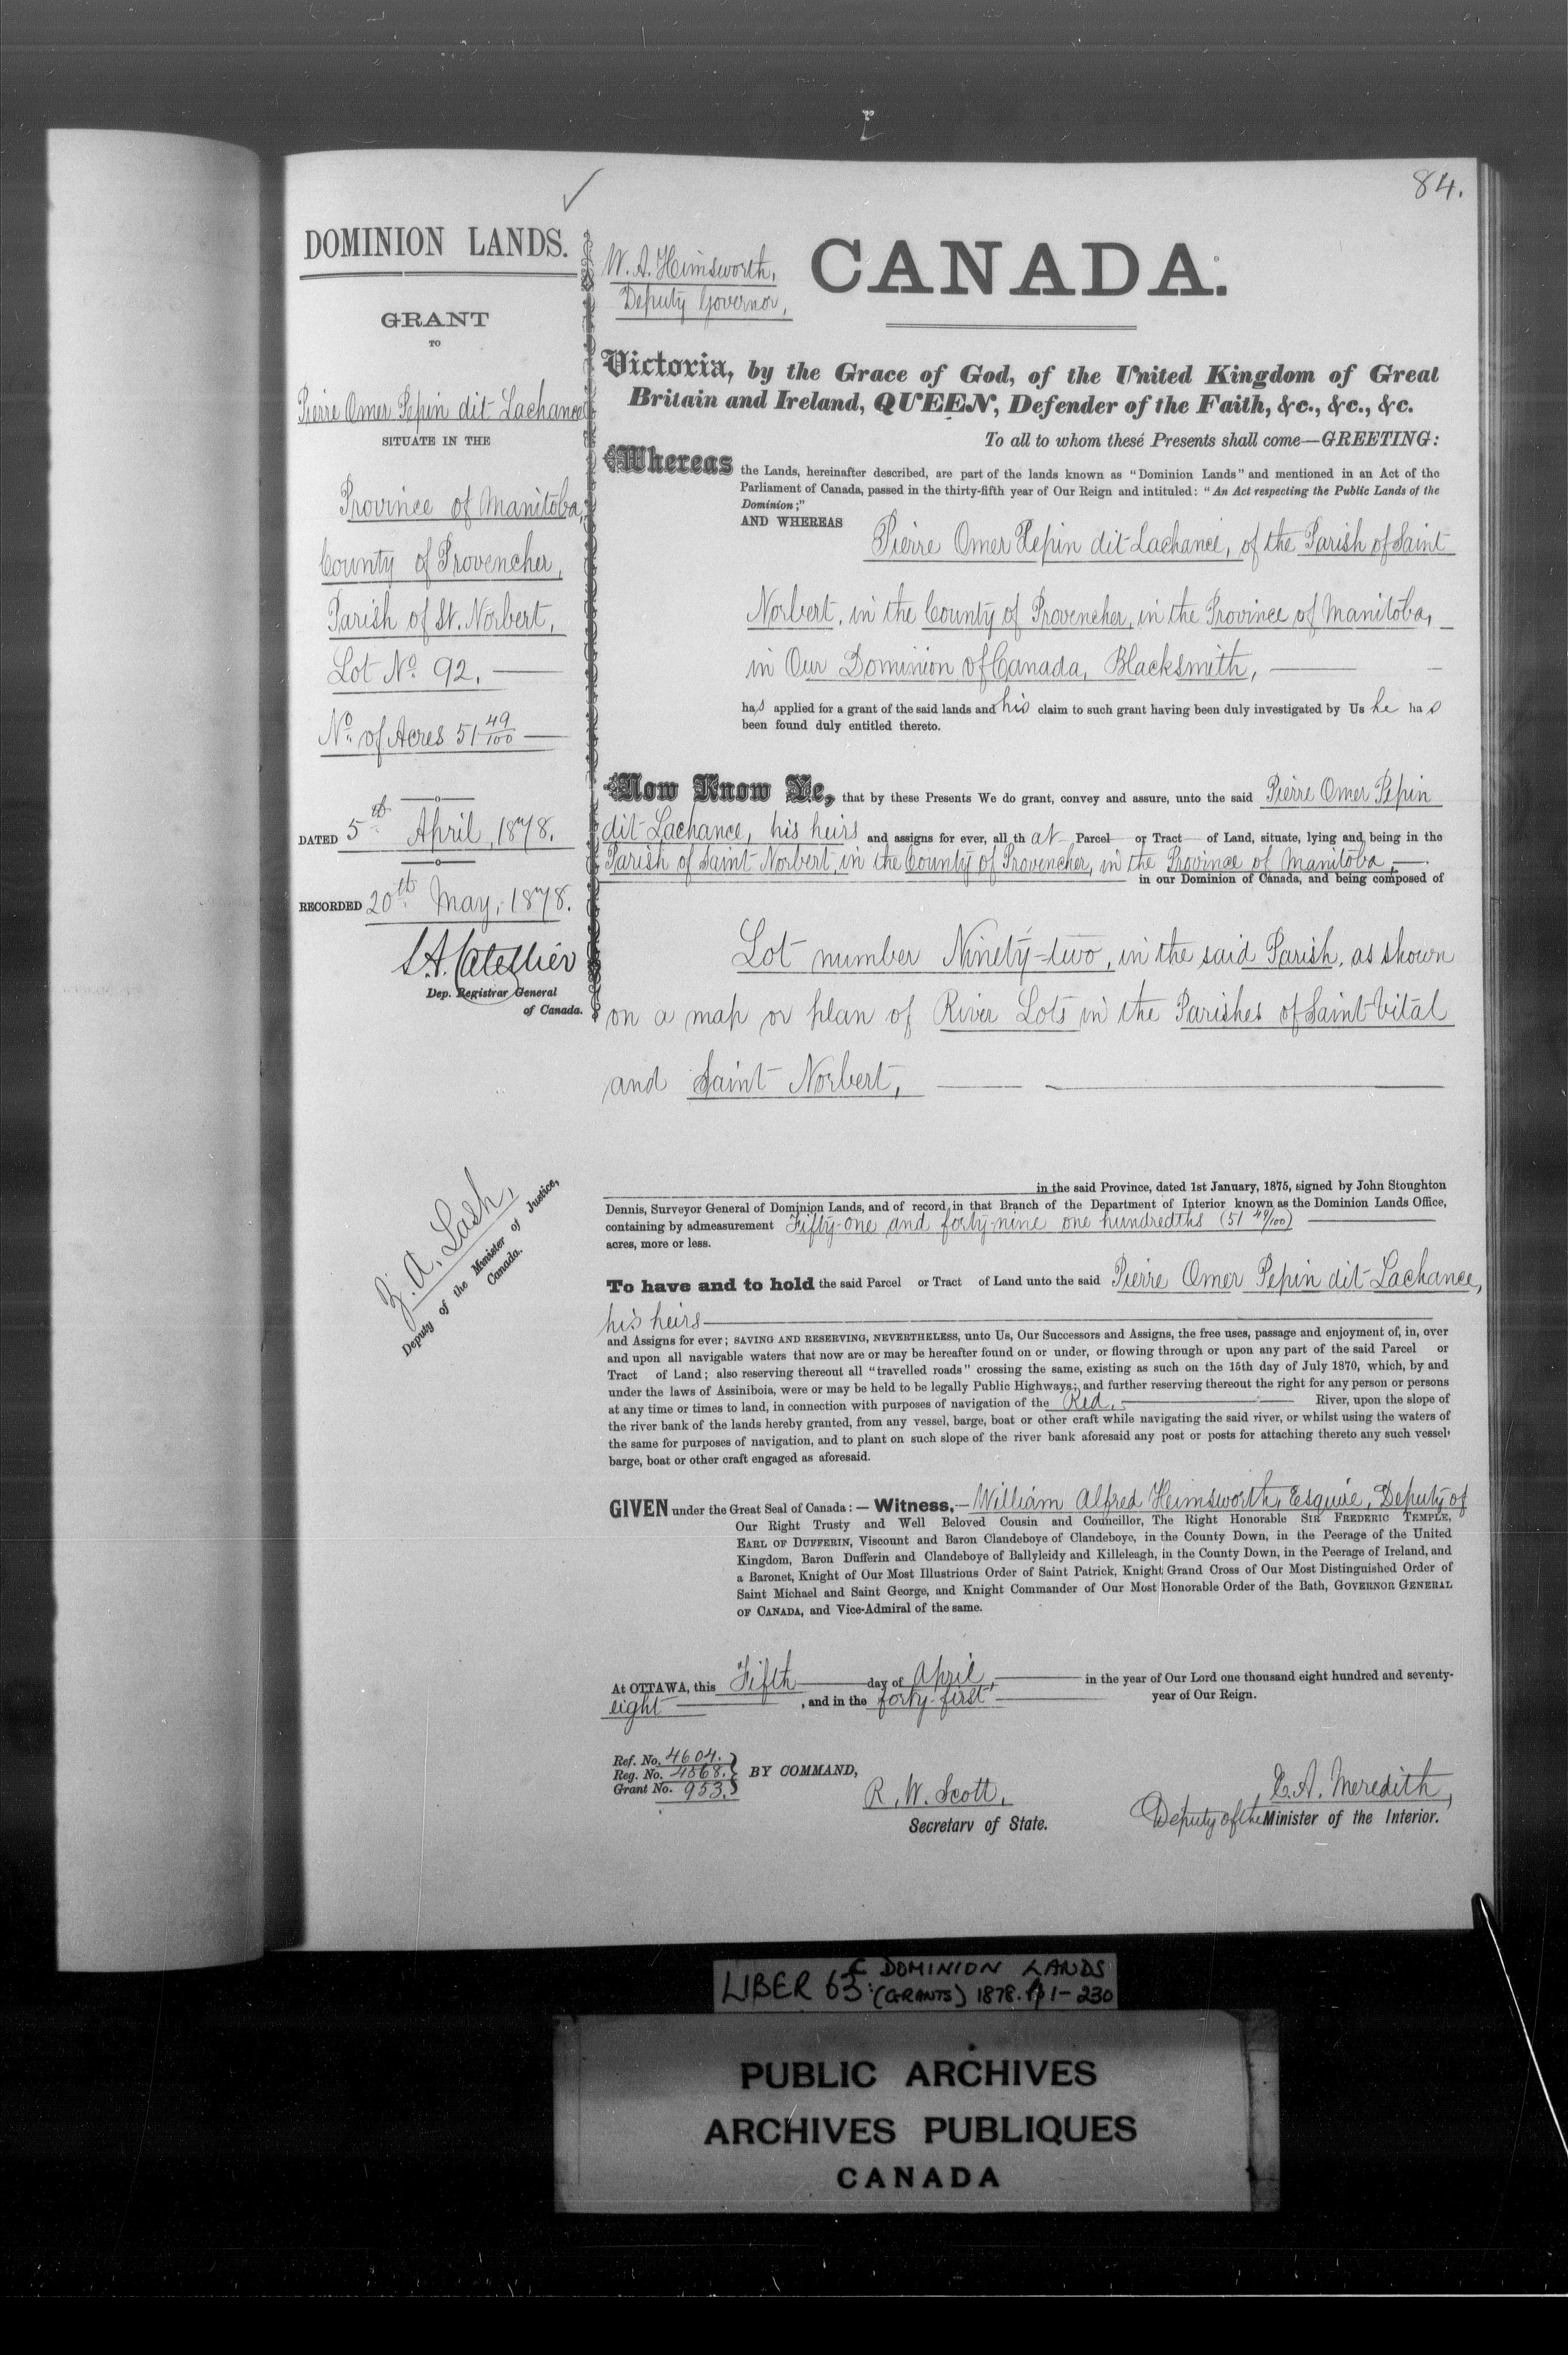 84.
DOMINION LANDS.
GRANT
TO
Pierre Omer Pepin dit Lachance
SITUATE IN THE
Province of Manitoba,
County of Provencher,
Parish of St. Norbert,
Lot No. 92.
No. of Acres 51 49/100
DATED 5th April, 1878.
RECORDED 20th May, 1878.
L.A. Catellier
Dep. Registrar General
of Canada.
Z. A. Lash,
Deputy of the Minister of Justice,
Canada.
W. A. Himsworth,
Deputy Governor,
CANADA.
Victoria, by the Grace of God, of the United Kingdom of Great
Britain and Ireland, QUEEN, Defender of the Faith, &c., &c., &c.
To all to whom these Presents shall come—GREETING:
Whereas the Lands, hereinafter described, are part of the lands known as "Dominion Lands" and mentioned in an Act of the
Parliament of Canada, passed in the thirty-fifth year of Our Reign and intituled: "An Act respecting the Public Lands of the
Dominion;"
AND WHEREAS Pierre Omer Pepin dit Lachance, of the Parish of Saint
Norbert, in the County of Provencher, in the Province of Manitoba,
in Our Dominion of Canada, Blacksmith,
has applied for a grant of the said lands and his claim to such grant having been duly investigated by Us he has
been found duly entitled thereto.
Now Know Ye, that by these Presents We do grant, convey and assure, unto the said Pierre Omer Pepin
dit Lachance, his heirs and assigns for ever, all that Parcel or Tract of Land, situate, lying and being in the
Parish of Saint Norbert, in the County of Provencher, in the Province of Manitoba,
in our Dominion of Canada, and being composed of
Lot number Ninety-two, in the said Parish, as shown
on a map or plan of River Lots in the Parishes of Saint Vital
and Saint Norbert,
in the said Province, dated 1st January, 1875, signed by John Stoughton
Dennis, Surveyor General of Dominion Lands, and of record in that Branch of the Department of Interior known as the Dominion Lands Office,
containing by admeasurement Fifty-one and forty-nine one hundredths (51 49/100)
acres, more or less.
To have and to hold the said Parcel or Tract of Land unto the said Pierre Omer Pepin dit Lachance,
his heirs
and Assigns for ever; SAVING AND RESERVING, NEVERTHELESS, unto Us, Our Successors and Assigns, the free uses, passage and enjoyment of, in, over
and upon all navigable waters that now are or may be hereafter found on or under, or flowing through or upon any part of the said Parcel or
Tract of Land; also reserving thereout all "travelled roads" crossing the same, existing as such on the 15th day of July 1870, which, by and
under the laws of Assiniboia, were or may be held to be legally Public Highways; and further reserving thereout the right for any person or persons
at any time or times to land, in connection with purposes of navigation of the Red, River, upon the slope of
the river bank of the lands hereby granted, from any vessel, barge, boat or other craft while navigating the said river, or whilst using the waters of
the same for purposes of navigation, and to plant on such slope of the river bank aforesaid any post or posts for attaching thereto any such vessel,
barge, boat or other craft engaged as aforesaid.
GIVEN under the Great Seal of Canada:— Witness,— William Alfred Himsworth, Esquire, Deputy of
Our Right Trusty and Well Beloved Cousin and Councillor, The Right Honorable SIR FREDERIC TEMPLE,
EARL OF DUFFERIN, Viscount and Baron Clandeboye of Clandeboye, in the County Down, in the Peerage of the United
Kingdom, Baron Dufferin and Clandeboye of Ballyleidy and Killeleagh, in the County Down, in the Peerage of Ireland, and
a Baronet, Knight of Our Most Illustrious Order of Saint Patrick, Knight Grand Cross of Our Most Distinguished Order of
Saint Michael and Saint George, and Knight Commander of Our Most Honorable Order of the Bath, GOVERNOR GENERAL
OF CANADA, and Vice-Admiral of the same.
At OTTAWA, this Fifth day of April, in the year of Our Lord one thousand eight hundred and seventy-
eight, and in the forty-first year of Our Reign.
Ref. No. 4604.
Reg. No. 4568.
Grant No. 953.
BY COMMAND,
R. W. Scott,
Secretary of State.
E. A. Meredith,
Deputy of the Minister of the Interior.
LIBER 63: C DOMINION LANDS
(GRANTS) 1878. pp 1-230
PUBLIC ARCHIVES
ARCHIVES PUBLIQUES
CANADA